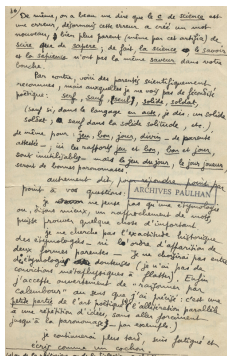 De même, on a beau me dire que le c de science est
une erreur, désormais cette erreur a créé un mot
nouveau, bien plus parent (même par cet artifice) de
scire que de sapere ; de fait la science, le savoir
et la sapience n'ont pas la même saveur dans notre
bouche.
Par contre, voici des parentés scientifiquement
reconnues, mais auxquelles je ne vois pas de fécondité
poétique : seuf, solide, soldat,
(sauf si, dans le langage en acte, je dis, un solide
soldat, dans la solde, etc.)
de même pour : jeu, bon, jour, divin - de parenté
attestée -, ici les rapports jeu et bon, bon et jour
sont inutilisables - mais le jeu du jour, le jour joueur
seront de bonnes paronomases
autrement dit, pour répondre point par
point à vos questions :
ARCHIVES PAULHAN
je ne pense pas qu'une étymologie
ou, disons mieux, un rapprochement de mots
puisse prouver quelque chose d'important
je ne cherche pas l'exactitude historique
des étymologies - ni l'ordre d'apparition de
deux formes parentes. Je ne choisirai pas entre
étymologies douteuses (je n'ai pas de
convictions métaphysiques à flatter). Enfin
j'accepte ouvertement de "
calembour" au sens que j'ai précisé : c'est une
petite partie de l'art poétique (l'allitération parallèle
à une répétition d'idées, sans aller forcément
jusqu'à la paronomase, par exemple.)
je continuerai plus tard, suis fatigué et
écrit comme un cochon